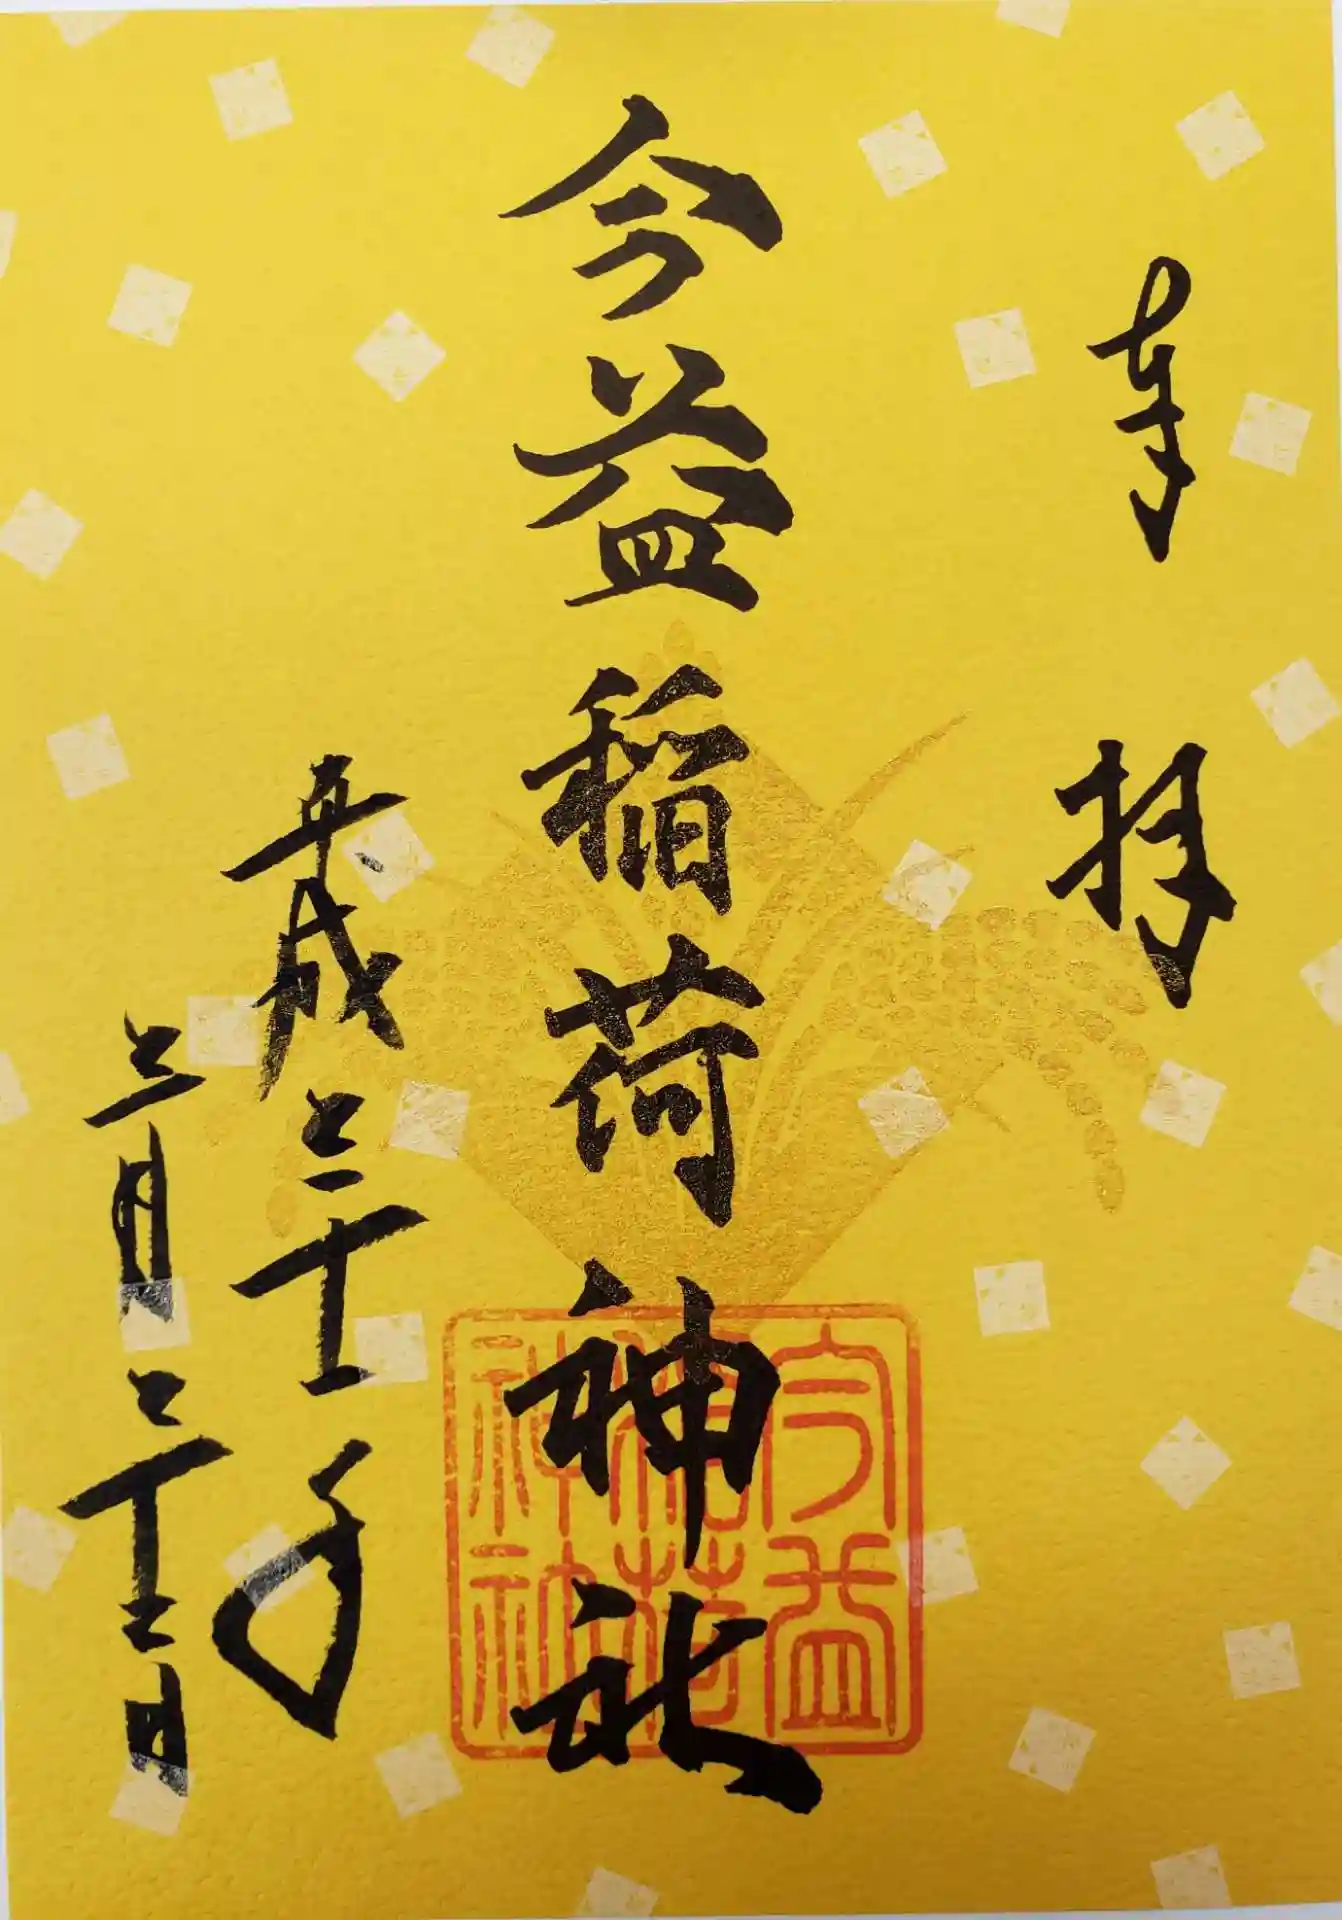 奉拝
今益稲荷神社
平成三十一年
三月二十二日
今益
稲荷
神社